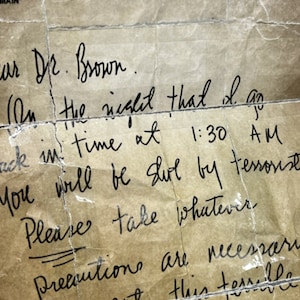 MAIN
ar Dr. Brown.
On the night that I go
ack in time at 1:30 AM
you will be shot by terrorist
Please take whatever
precautions are necessary
this terrible